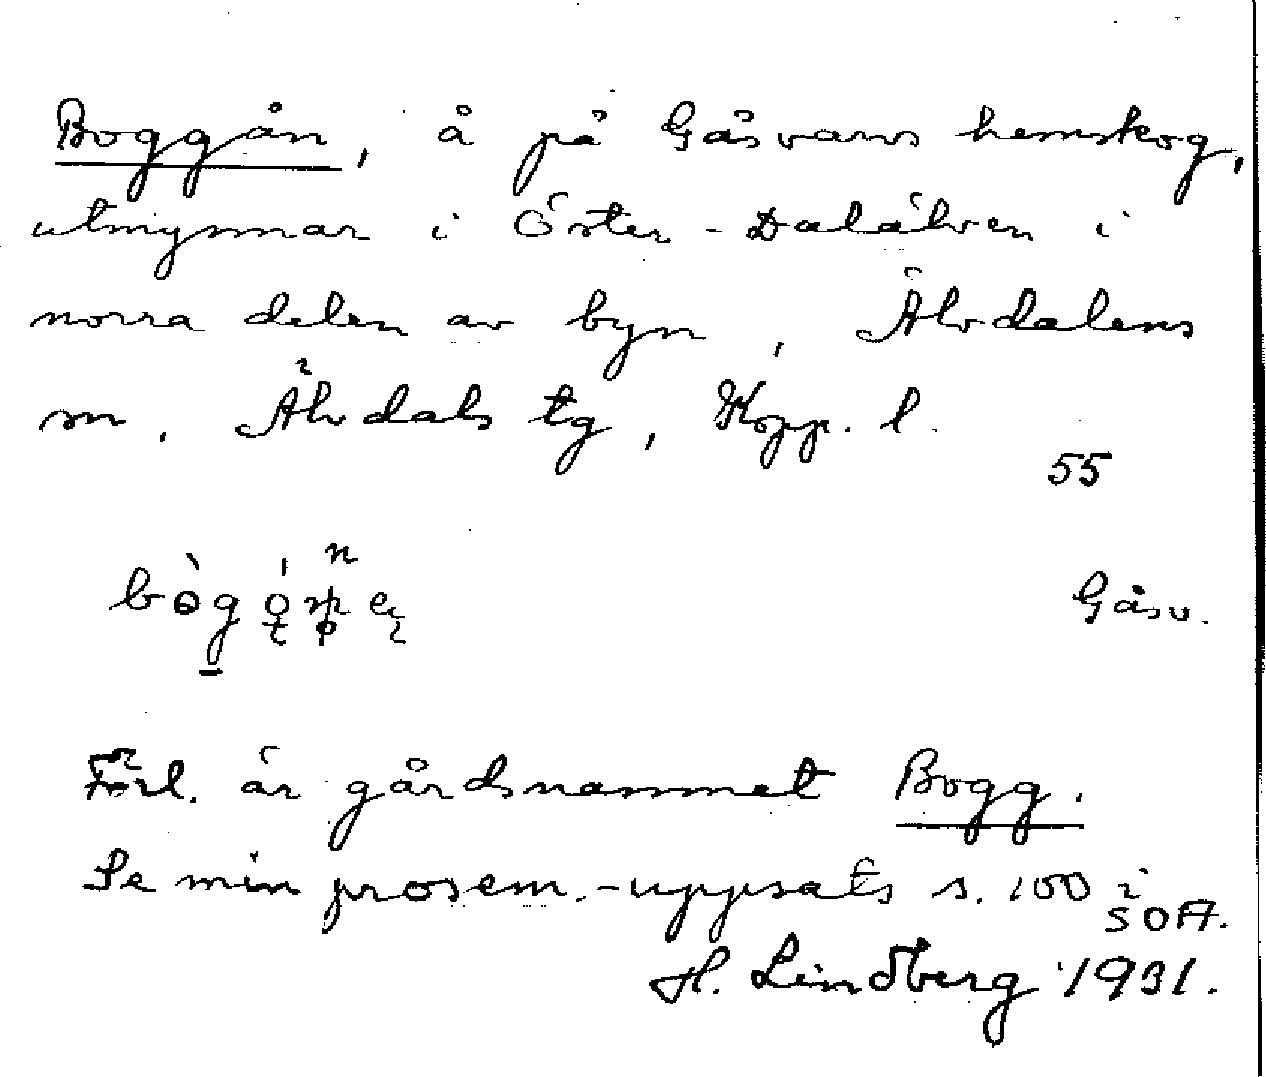 Boggån, å på Gåsvarvs hemskog,
utmynnar i Öster-Dalälven i
norra delen av byn, Älvdalens
sn, Älvdals tg, Kopp. l.
55
Gåsv.
Förl. är gårdsnamnet Bogg.
Se min prosem.-uppsats s. 100 i
SOA.
H. Lindberg 1931.